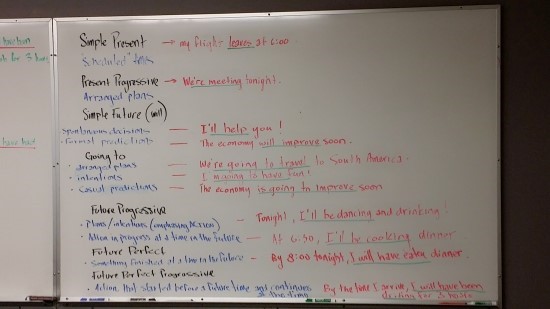 have been
for 3 hours
have had
Simple Present → my flight leaves at 6:00
Scheduled
Present Progressive → We're meeting tonight.
Arranged plans
Simple Future (will)
spontaneous decisions — I'll help you!
• Formal predictions — The economy will improve soon.
Going to
• arranged plans — We're going to travel to South America.
• intentions — I'm going to have fun!
• casual predictions — The economy is going to improve soon
Future Progressive
• Plans/intentions — Tonight, I'll be dancing and drinking!
• Action in progress at a time in the future — At 6:30, I'll be cooking dinner
Future Perfect
• Something finished at a time in the future — By 8:00 tonight, I will have eaten dinner.
Future Perfect Progressive
• Action that started before a future time and continues By the time I arrive, I will have been
waiting for 3 hours